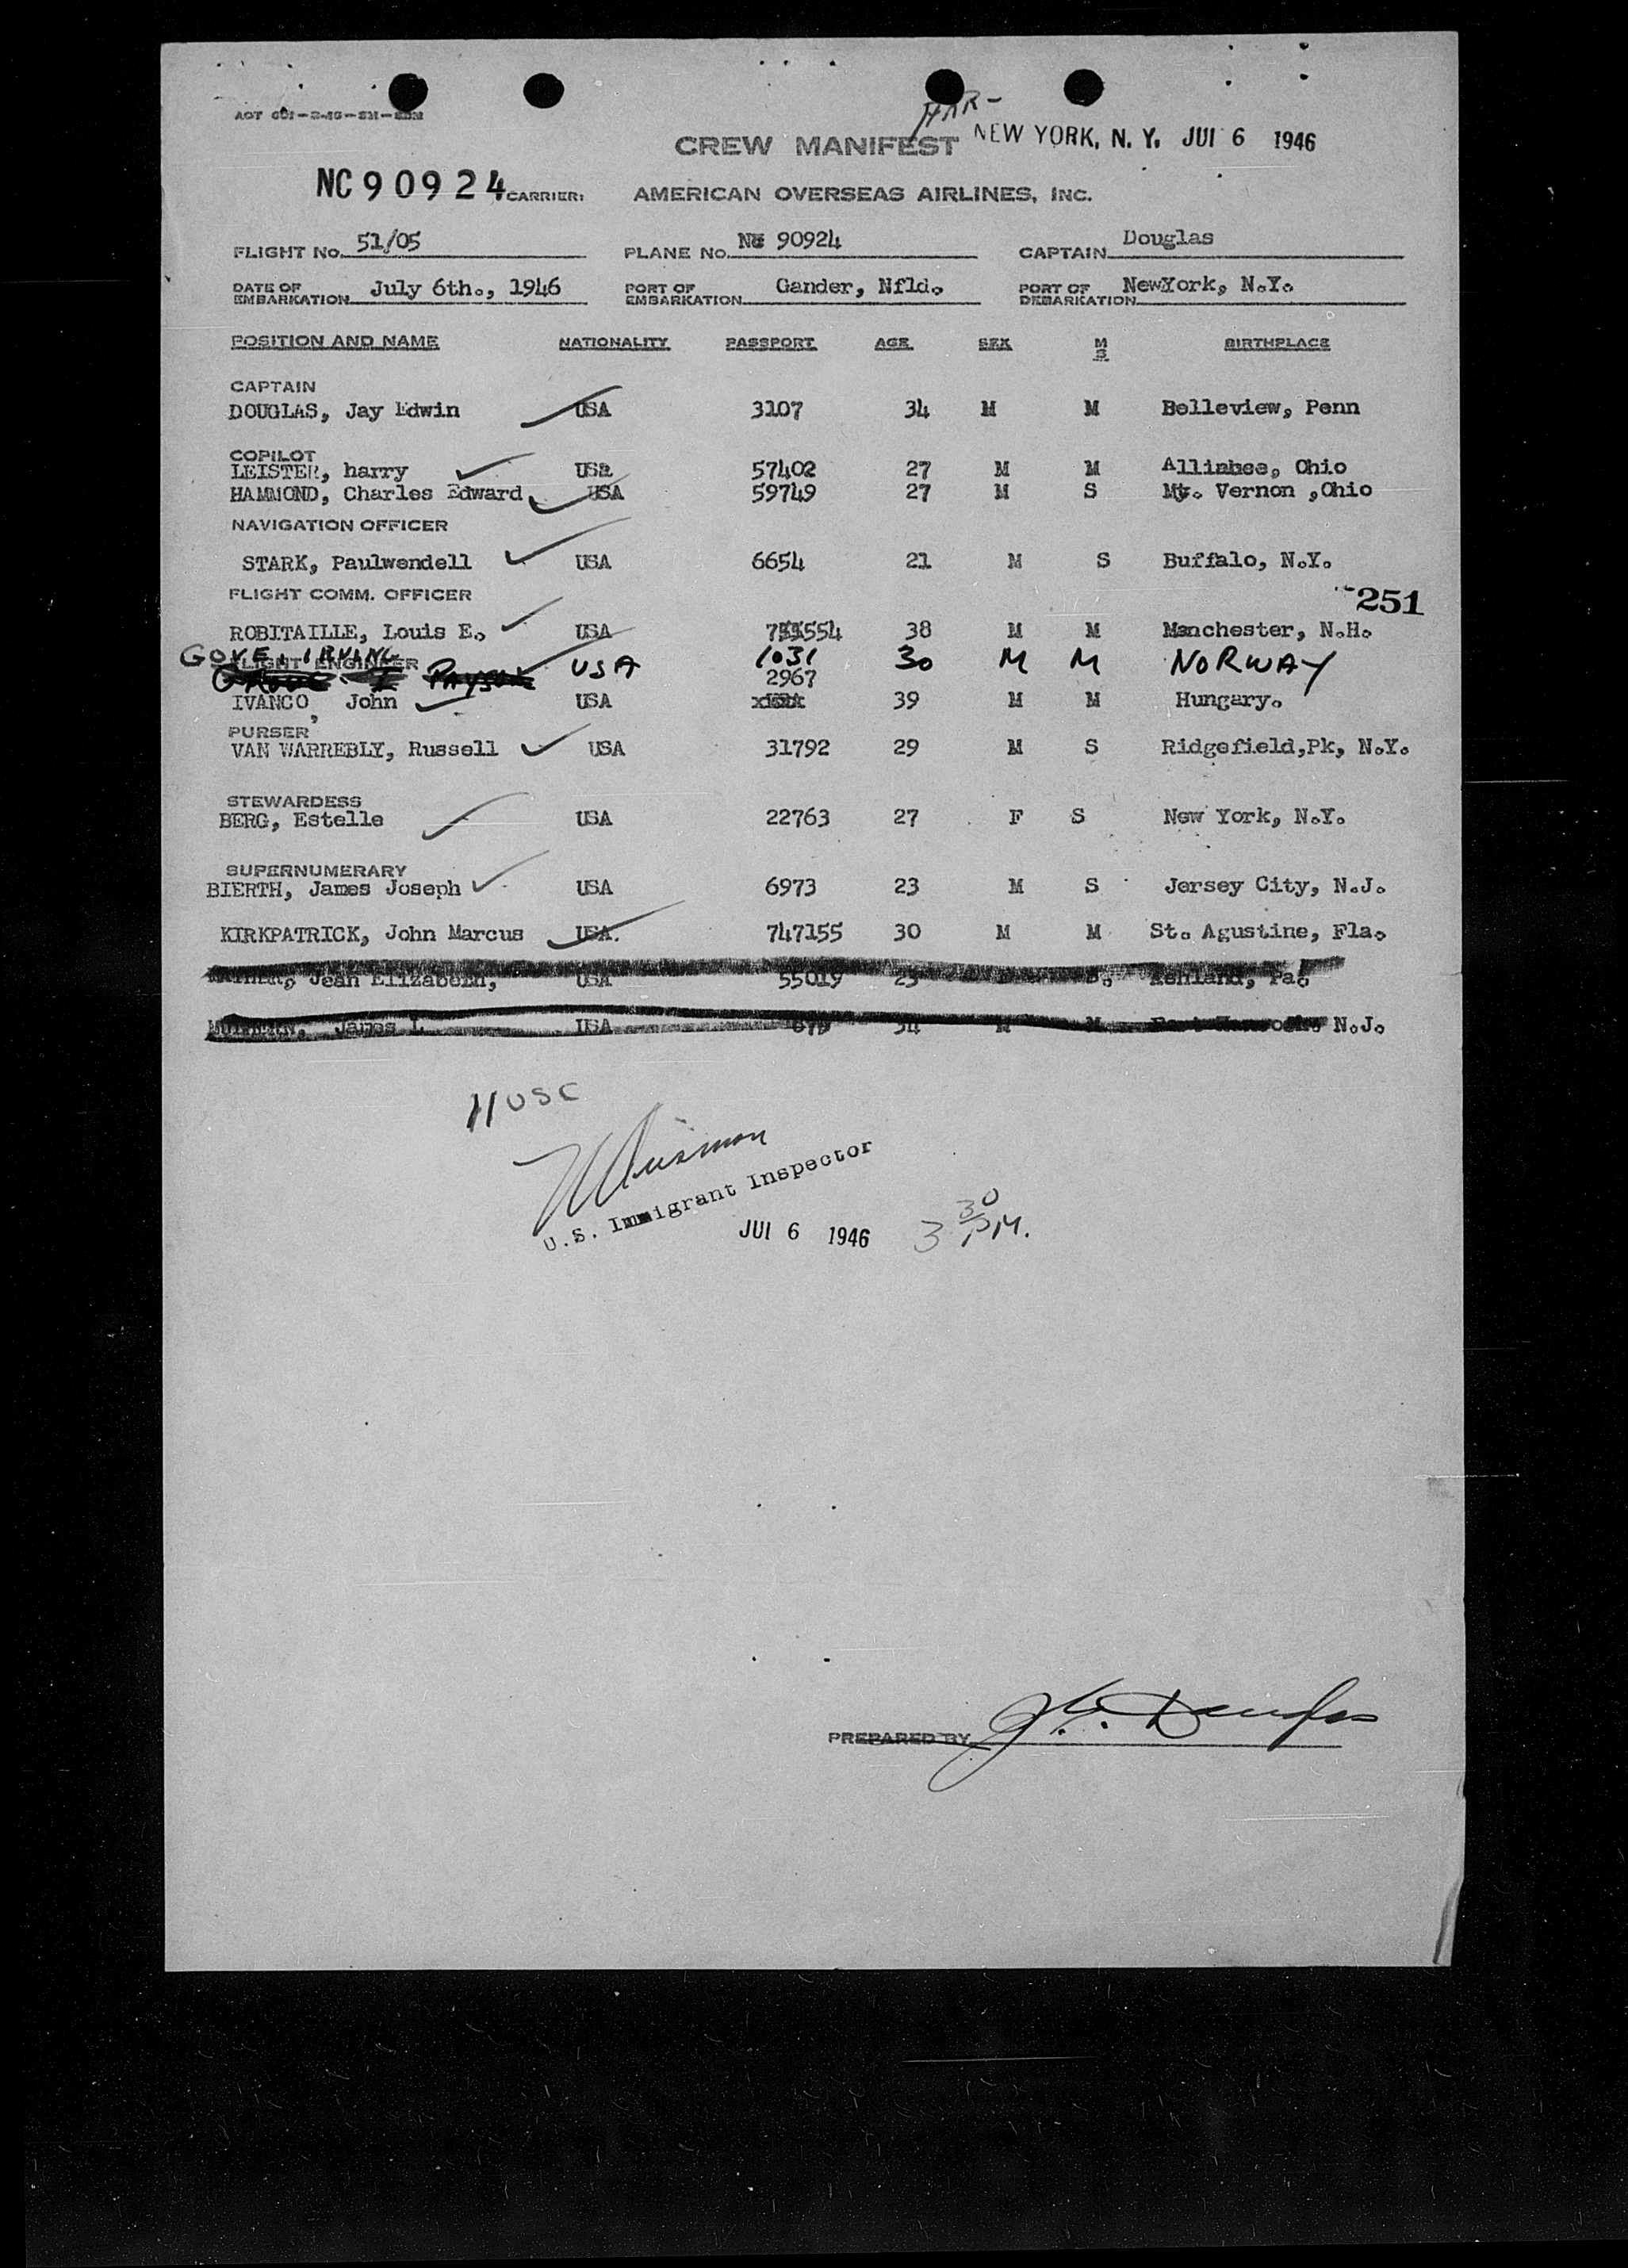 HAR-
NEW YORK, N. Y. JUL 6 1946
CREW MANIFEST
NC90924 CARRIER: AMERICAN OVERSEAS AIRLINES, INC.
FLIGHT NO. 51/05 PLANE NO. NC 90924 CAPTAIN Douglas
DATE OF EMBARKATION July 6th., 1946 PORT OF EMBARKATION Gander, Nfld. PORT OF DEBARKATION NewYork, N.Y.
POSITION AND NAME NATIONALITY PASSPORT AGE SEX M S BIRTHPLACE
CAPTAIN
DOUGLAS, Jay Edwin USA 3107 34 M M Belleview, Penn
COPILOT
LEISTER, harry USa 57402 27 M M Ohio
HAMMOND, Charles Edward USA 59749 27 M S Mt. Vernon ,Ohio
NAVIGATION OFFICER
STARK, Paulwendell USA 6654 21 M S Buffalo, N.Y.
FLIGHT COMM. OFFICER
251
ROBITAILLE, Louis E. USA 38 M M Manchester, N.H.
GOVE, IRVING USA 1031 30 M M NORWAY
FLIGHT ENGINEER
PAYSON 2967
IVANCO, John USA 39 M M Hungary.
PURSER
VAN WARREBLY, Russell USA 31792 29 M S Ridgefield,Pk, N.Y.
STEWARDESS
BERG, Estelle USA 22763 27 F S New York, N.Y.
SUPERNUMERARY
BIERTH, James Joseph USA 6973 23 M S Jersey City, N.J.
KIRKPATRICK, John Marcus USA. 747155 30 M M St. Agustine, Fla.
Jean Elizabeth, USA 55019 23 S. Ashland, Pa.
James L USA 34 M M N.J.
11 USC
U.S. Immigrant Inspector
JUL 6 1946 3 30 P.M.
PREPARED BY J.E. Douglas